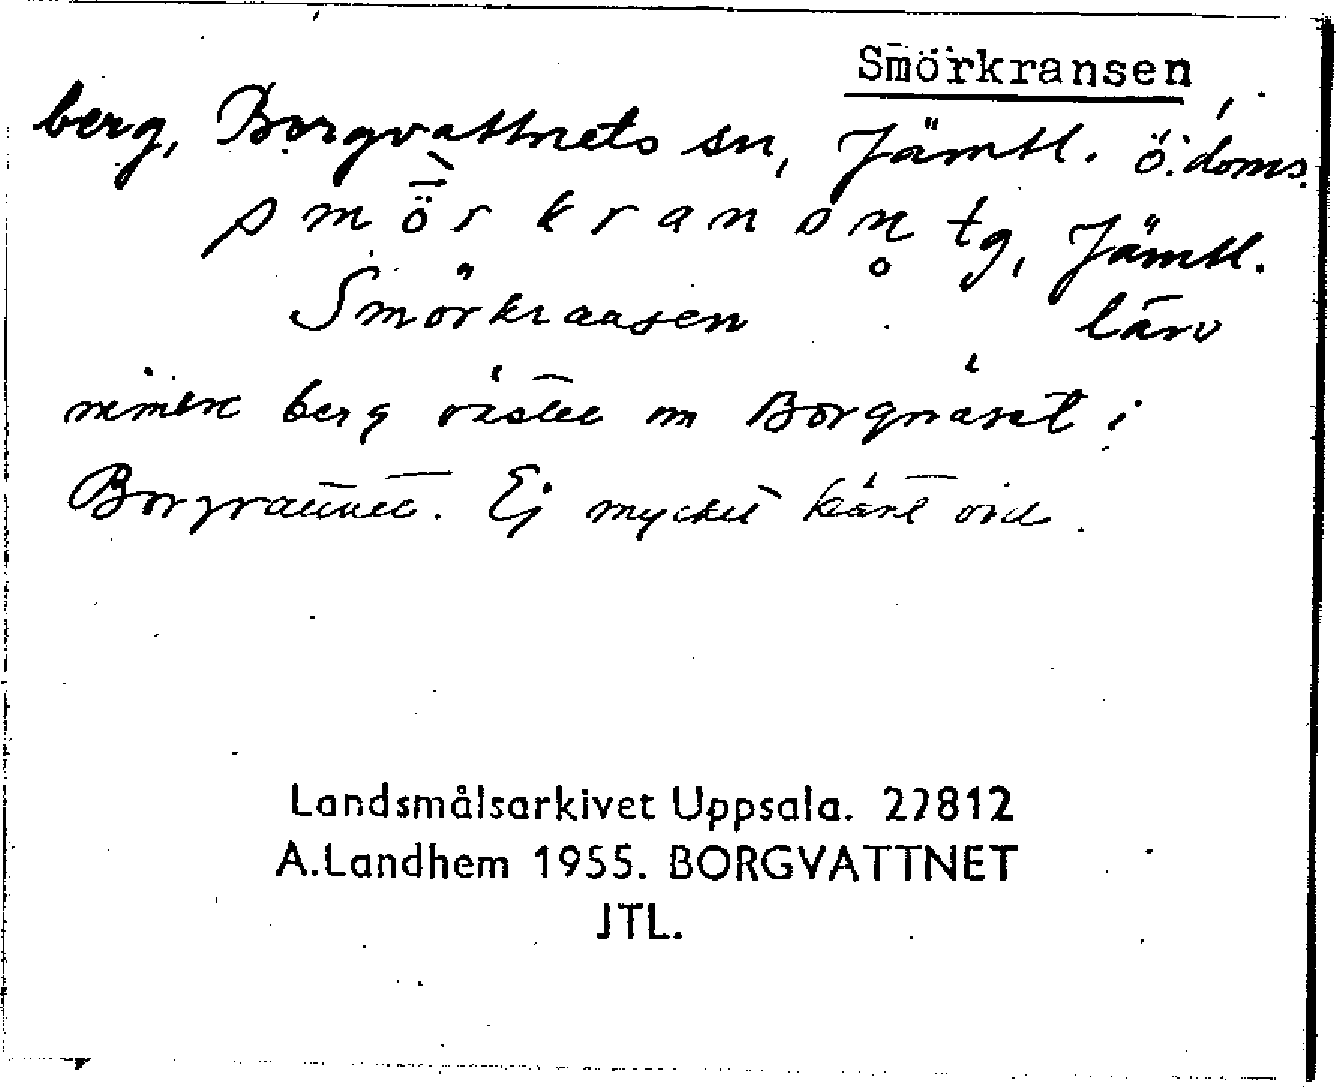 Smörkransen
berg, Borgvattnets sn, Jämtl. ö. doms.
smörkransn tg, Jämtl.
Smörkransen län
mindre berg väster om Borgnäset i
Borgvattnet. Ej mycket känt ord.
Landsmålsarkivet Uppsala. 22812
A.Landhem 1955. BORGVATTNET
JTL.